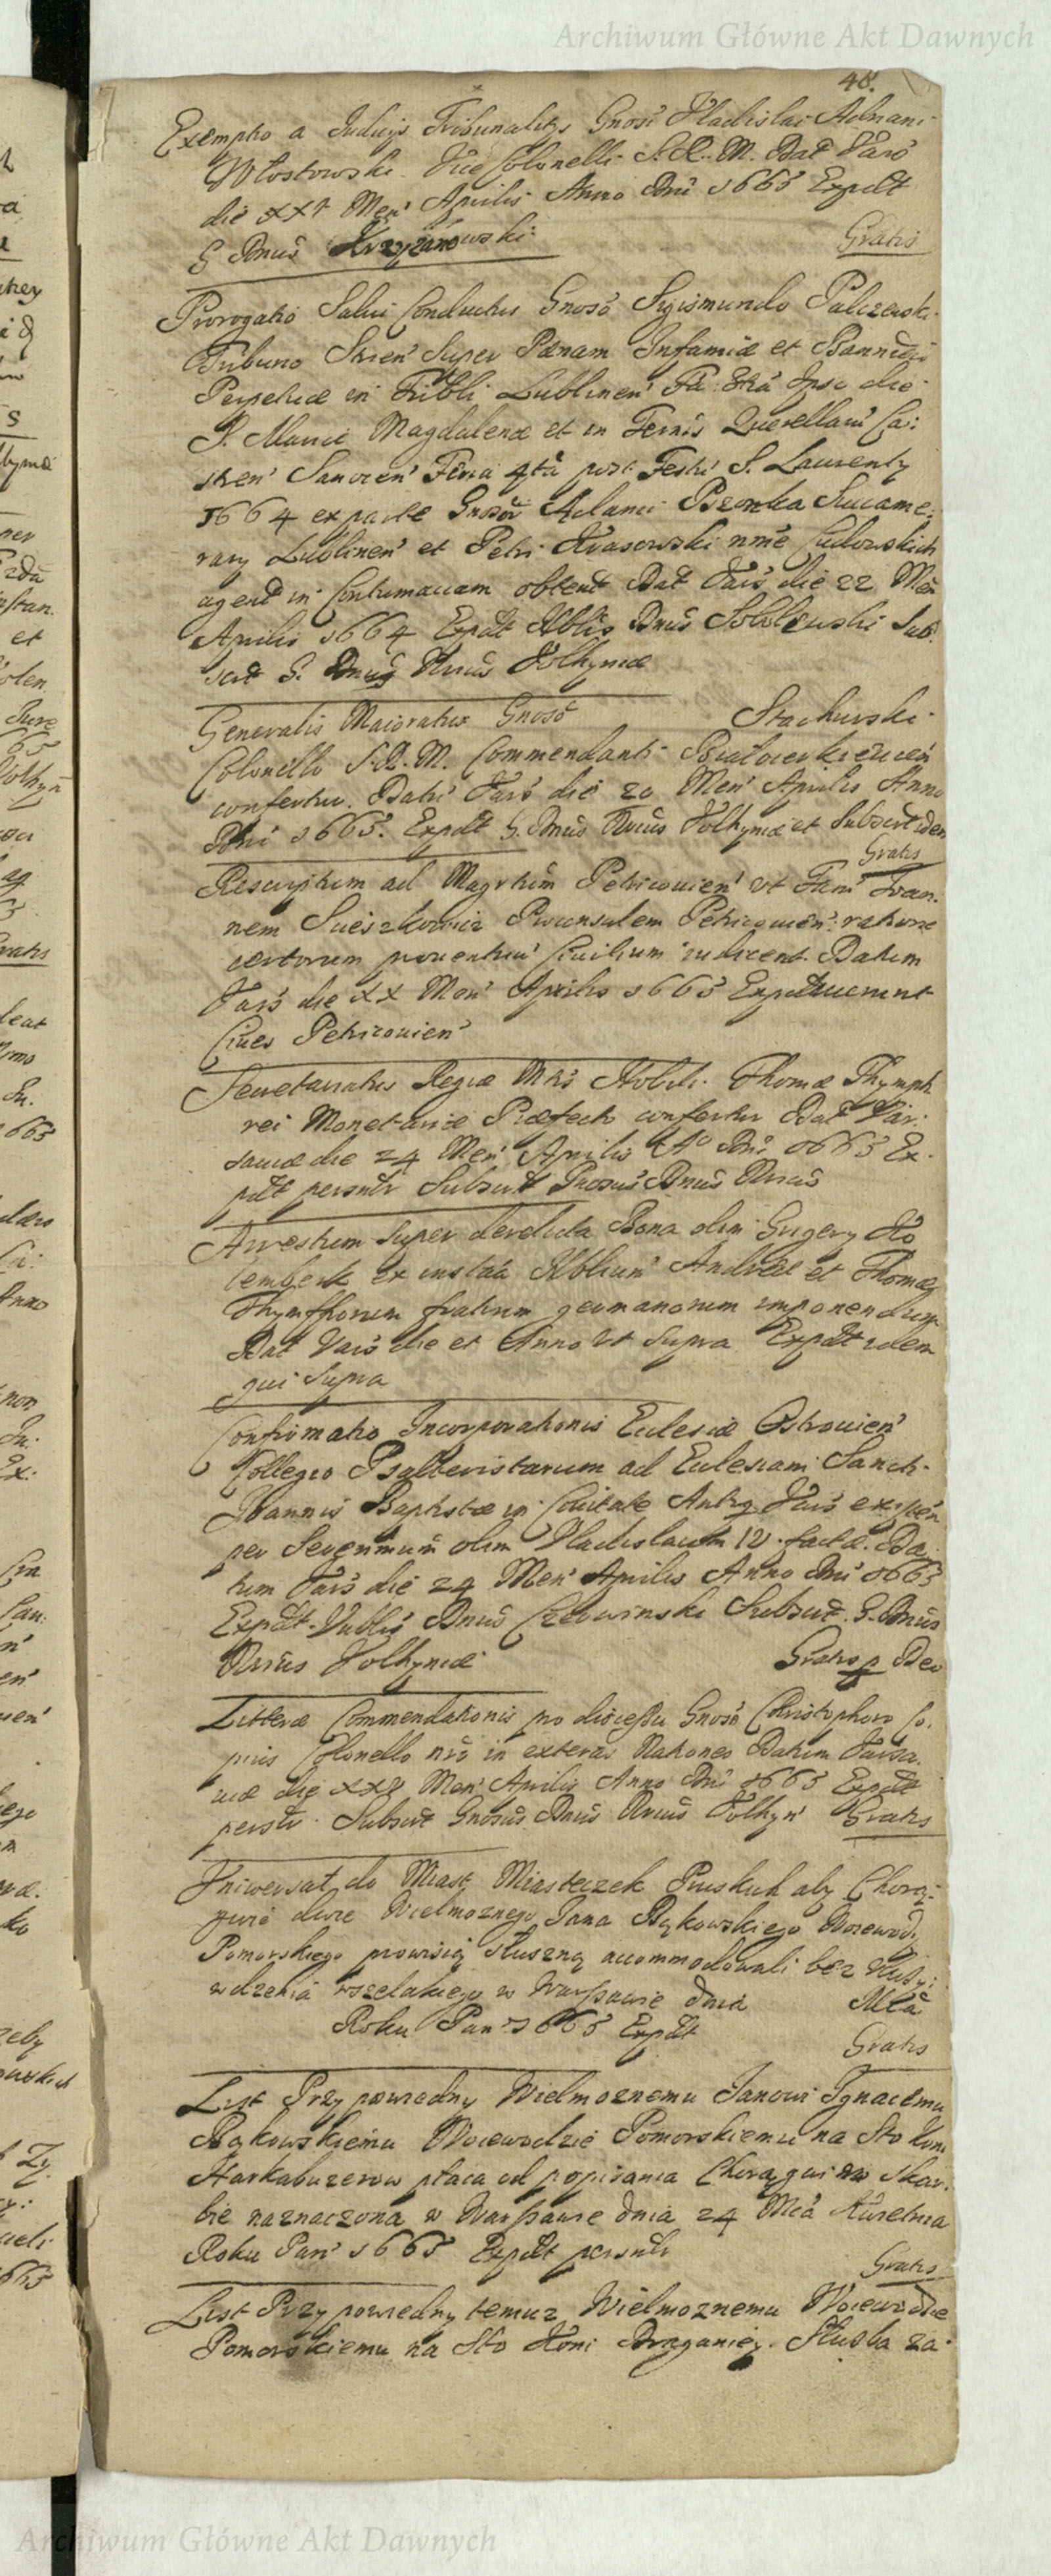 Archiwum Główne Akt Dawnych
48.
Exemptio a Judicijs Tribunalitijs Gnosi Vladislai Adriani
Włostowski Vice Colonelli S.R.M. Dat Vars
die XXV Men Aprilis Anno Dni 1665 Expdt
G Dnus Krzyżanowski
Gratis
Prorogatio Salvi Conductus Gnoso Sigismundo Palczewski
Tribuno super Pœnam Infamiæ et Bannitiois
Perpetuæ in Tribli Lublinen Fa ipso die
S. Mariæ Magdalenæ et in Termis Querellaru Ca:
stren Sanocen Feria 4ta post Festu S. Laurenty
1664 ex parte Gnosor Adami Bronka Succame:
rary Lublinen et Petri Krasowski nme
agend in Contumaciam obtent Dat Vars die 22 Men
Aprilis 1664 Expdt Nblis Dnus Sobolewski Sub:
scrt G. Dnus Volhyniæ
Generalis Maioratus Gnoso Stachurski
Colonello S.R.M. Commendanti Białocerkievien
confertur. Datu Vars die 20 Men Aprilis Anno
Dni 1665. Expdt G. Dnus Volhyniæ et Subscrt idem
Gratis
Rescriptum ad Magrtum Petricovien ut Fam Ioan:
nem Proconsulem Petricovien ratione
certorum proventuu Civilium iudicent. Datum
Vars die XX Men Aprilis 1665 Expediverunt
Cives Petricovien
Secretariatus Regiæ Mtis Nobili Thomæ Thymph
rei Monetariæ Præfecto confertur Dat Var:
saviæ die 24 Men Aprilis Ao Dni 1665 Ex:
pdt personlr Subscrt Gnosus Dnus
Arrestum super derelicta Bona olim Grigery Ko
lembek ex instca Nblium Andreæ et Thomæ
Thymffiorum fratrum germanorum imponendum
Dat Vars die et Anno ut supra Expdt idem
qui supra
Confirmatio Incorporationis Eclesiæ Ostrovien
Collegio Psalteristarum ad Eclesiam Sancti
Joannis Baptistæ in Civitate Antiq Vars existen
per Serenimum olim Vladislaum IV. factæ. Da:
tum Vars die 24 Men Aprilis Anno Dni 1665
Expdt. Dnus Czerwinski Subscrt. G. Dnus
Volhyniæ Gratis p Deo
Litteræ Commendationis pro discessu Gnoso Christophoro Co:
pius Colonello nro in exteras Nationes Datum Varsa:
viæ die Men Aprilis Anno Dni 1665 Expdt
perslr. Subscrt Gnosus Dnus Volhyn Gratis
Uniwersał do Miast Miasteczek Pruskich aby Chorą:
gwie dwie Wielmoznego Jana Bąkowskiego Woiewody
Pomorskiego prowisią słuszną accommodowali bez
wszelakiego w Warszawie dnia Mca
Roku Pan 1665 Expdt
Gratis
List Przypowiedny Wielmoznemu Janowi Ignacemu
Bąkowskiemu Woiewodzie Pomorskiemu na Sto koni
Harkabuzerow płaca od popisania Chorągwi w skar:
bie naznaczona w Warszawie dnia 24 Mca Kwietnia
Roku Pan 1665 Expdt personlr
Gratis
List Przypowiedny temuz Wielmoznemu Woiewodzie
Pomorskiemu na Sto Koni Draganiey. Służba za:
Archiwum Główne Akt Dawnych